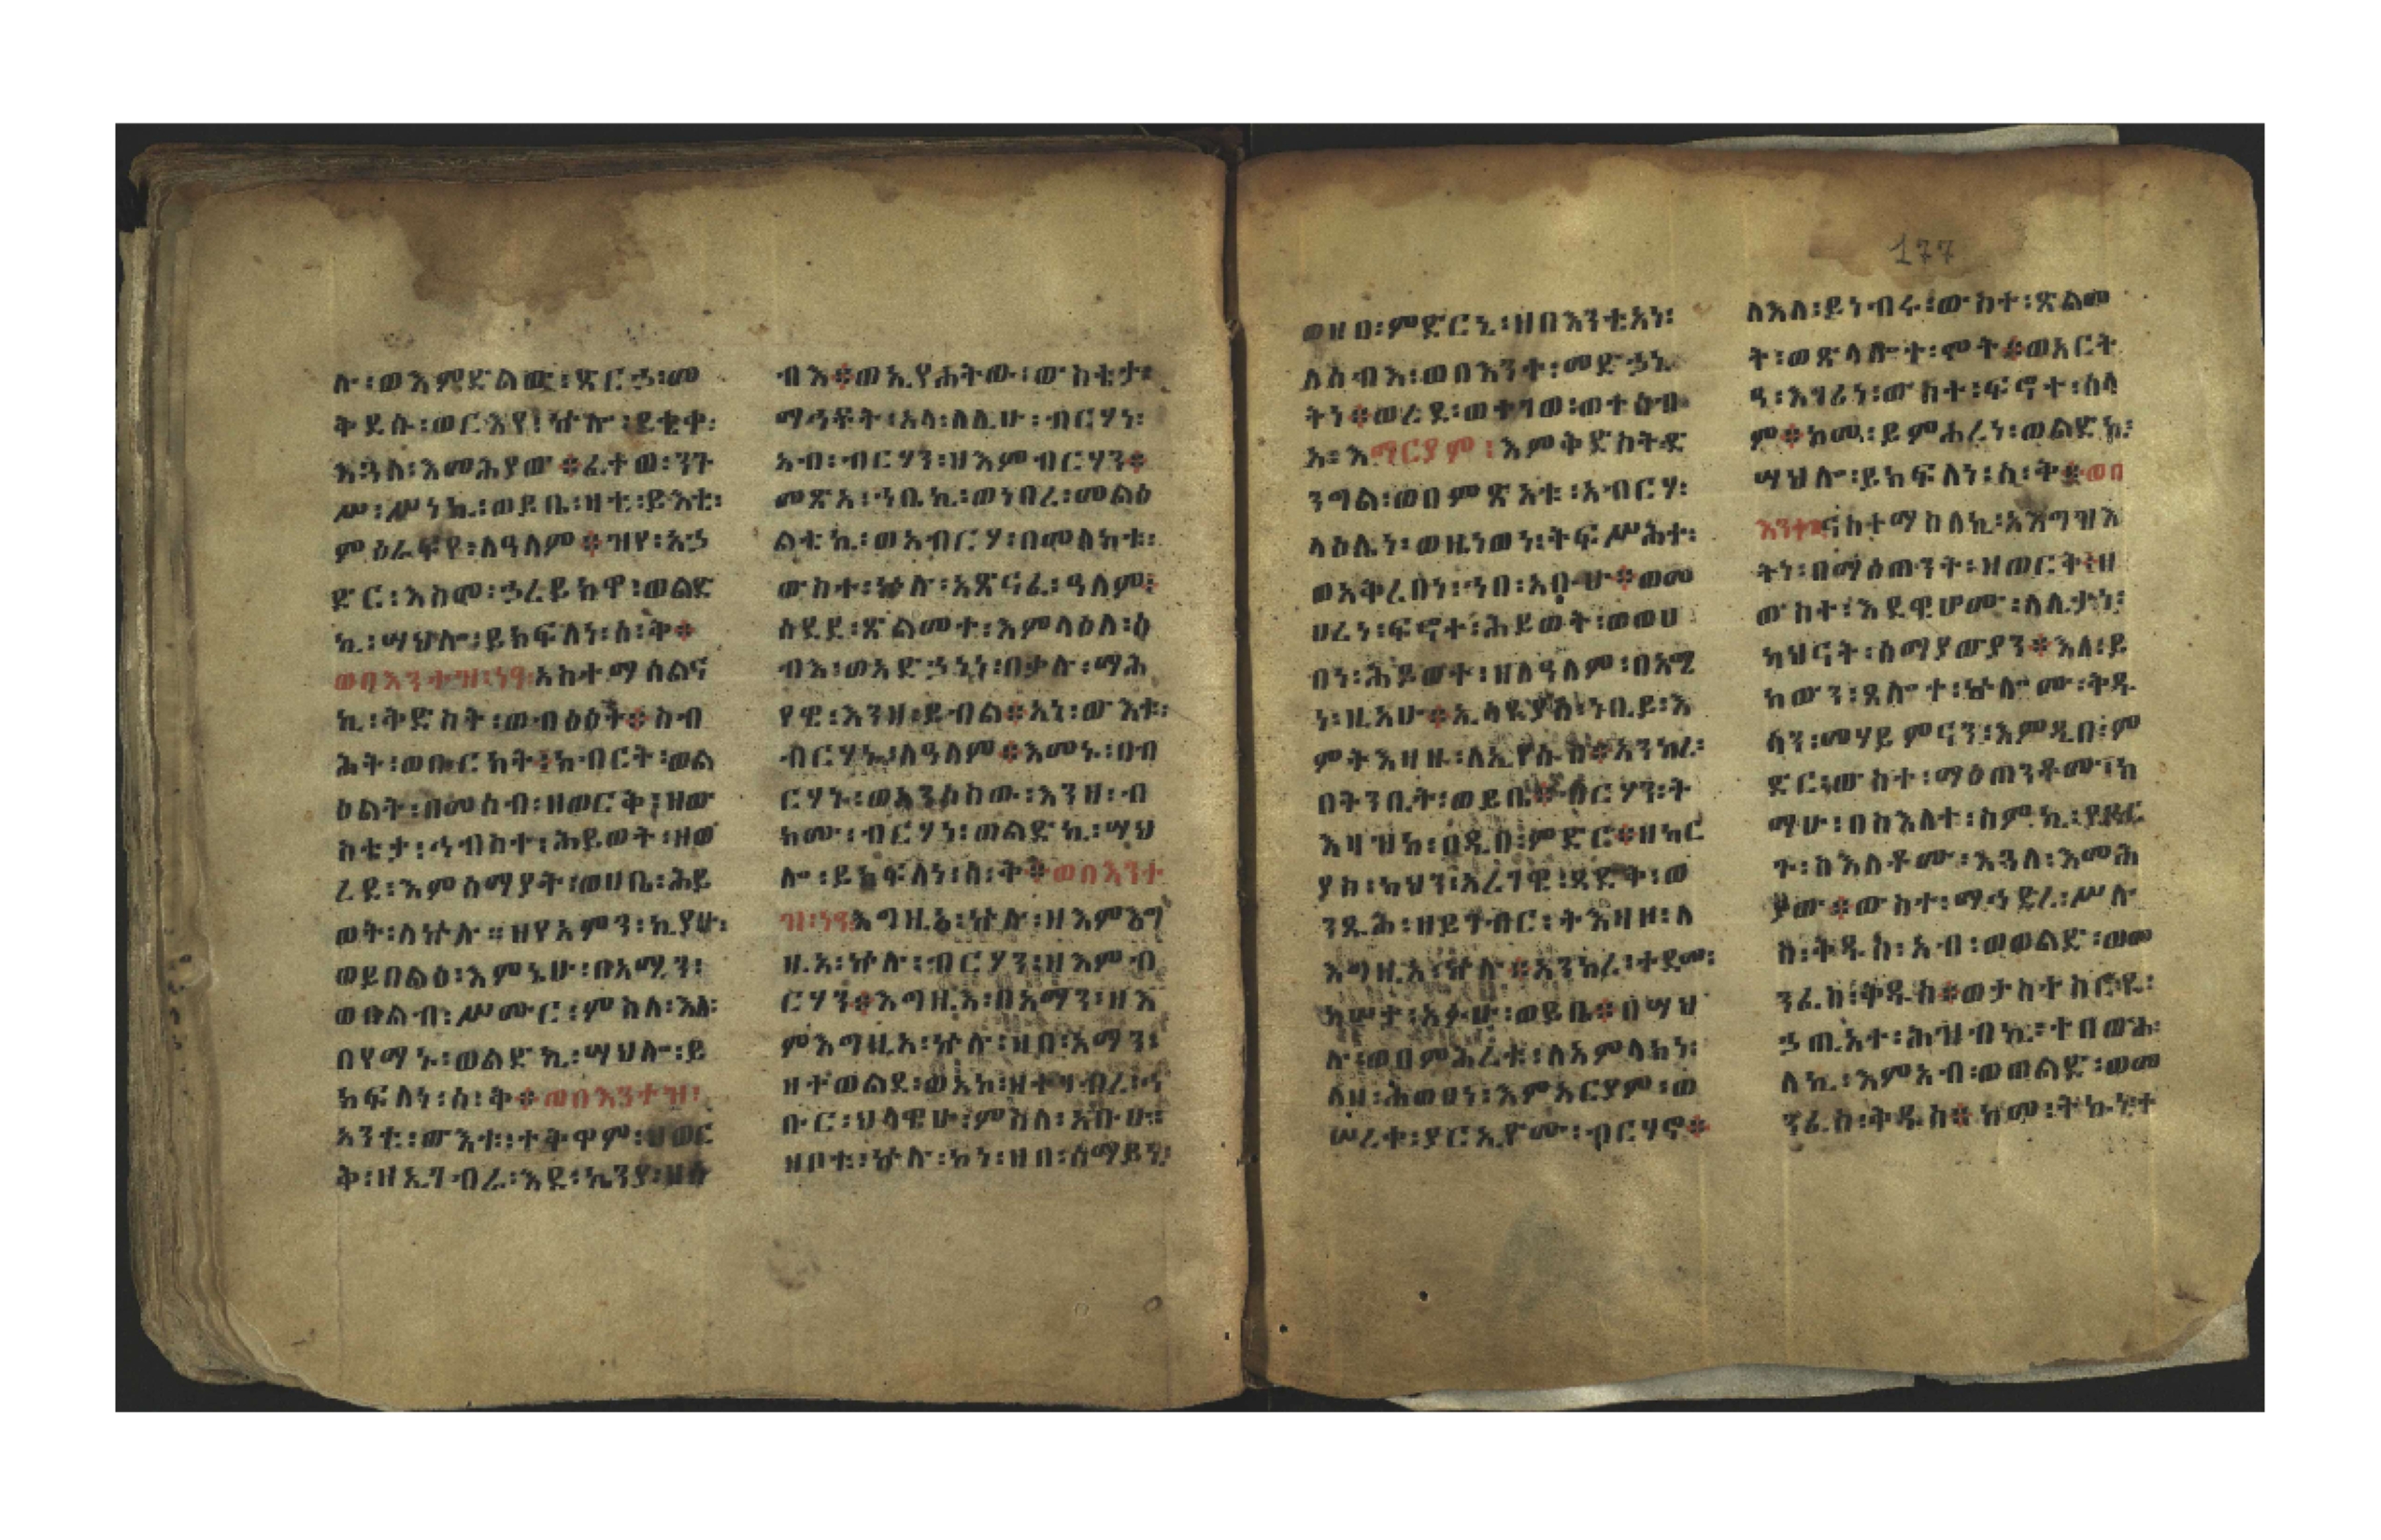 ሉ፡ወእምድልወ፡ጽርኃ፡መ
ቅደሱ፡ወርእየ፡ኵሎ፡ደቂቀ፡
እጓለ፡እመሕያው፨ፈተወ፡ንጉ
ሥ፡ሥነኪ፡ወይቤ፡ዛቲ፡ይእቲ፡
ምዕራፍየ፡ለዓለም፨ዝየ፡አኃ
ድር፡እስመ፡ኃረይክዋ፡ወልድ
ኪ፡ሣህሎ፡ይክፍለነ፡ስ፡ቅ፨
ወበእንተዝ፡ነዓ፡አስተማሰልና
ኪ፡ቅድስት፡ወብፅዕት፨ስብ
ሕት፡ወቡርክት፨ክብርት፡ወል
ዕልት፡በመሶብ፡ዘወርቅ፡ዘው
ስቴታ፡ኅብስተ፡ሕይወት፡ዘወ
ረደ፡እምሰማያት፡ወሀቤ፡ሕይ
ወት፡ለኵሉ።ዘየአምን፡ኪያሁ፡
ወይበልዕ፡እምኔሁ፡በአሚን፡
ወበልብ፡ሥሙር፡ምስለ፡እለ፡
በየማኑ፡ወልድኪ፡ሣህሎ፡ይ
ክፍለነ፡ስ፡ቅ፨ወበእንተዝ፡
አንቲ፡ውእቱ፡ተቅዋም፡ዘወር
ቅ፡ዘኢገብራ፡እደ፡ኬንያ፡ዘሰ
ብእ፨ወኢየሐትው፡ውስቴታ፡
ማኅቶት፡አላ፡ለሊሁ፡ብርሃነ፡
አብ፡ብርሃን፡ዘእምብርሃን፨
መጽአ፡ኀቤኪ፡ወነበረ፡መልዕ
ልቴኪ፡ወአብርሃ፡በመለኮቱ፡
ውስተ፡ኵሉ፡አጽናፈ፡ዓለም፡
ሰደደ፡ጽልመተ፡እምላዕለ፡ሰ
ብእ፡ወአድኃነነ፡በቃሉ፡ማሕ
የዊ፡እንዘ፡ይብል፨አነ፡ውእቱ፡
ብርሃኑ፡ለዓለም፨እመኑ፡በብ
ርሃኑ፡ወአንሶስው፡እንዘ፡ብ
ክሙ፡ብርሃነ፡ወልድኪ፡ሣህ
ሎ፡ይክፍለነ፡ስ፡ቅ፨ወበእንተ
ዝ፡ነዓ፡እግዚኡ፡ኵሉ፡ዘእምእግ
ዚአ፡ኵሉ፡ብርሃን፡ዘእምብ
ርሃን፨እግዚእ፡በአማን፡ዘእ
ምእግዚአ፡ኵሉ፡ዘበ፡አማን፡
ዘተወልደ፡ወአኮ፡ዘተገብረ፡ኅ
ቡር፡ህላዌሁ፡ምስለ፡አቡሁ፡
ዘቦቱ፡ኵሉ፡ኮነ፡ዘበ፡ሰማይኒ፡
ወዘበ፡ምድርኒ፡ዘበእንቲአነ፡
ለሰብእ፡ወበእንተ፡መድኃኒ
ትነ፨ወረደ፡ወተገወ፡ወተሰብ
አ፡እማርያም፡እምቅድስት፡ድ
ንግል፡ወበምጽአቱ፡አብርሃ፡
ላዕሌነ፡ወዜነወነ፡ትፍሥሕተ፡
ወአቅረበነ፡ኀበ፡አቡሁ፨ወመ
ሀረነ፡ፍኖተ፡ሕይወት፡ወወሀ
በነ፡ሕይወተ፡ዘለዓለም፡በአሚ
ነ፡ዚአሁ፨ኢሳይያስ፡ነቢይ፡እ
ምትእዛዙ፡ለኢየሱስ፨አንከረ፡
በትንቢት፡ወይቤ፨ብርሃን፡ት
እዛዝከ፡በዲበ፡ምድር፨ዘካር
ያስ፡ካህን፡አረጋዊ፡ጻድቅ፡ወ
ንጹሕ፡ዘይገብር፡ትእዛዘ፡ለ
እግዚአ፡ኵሉ፨አንከረ፡ተደመ፡
ከሠተ፡አፉሁ፡ወይቤ፨በሣህ
ሉ፡ወበምሕረቱ፡ለአምላክነ፡
ለዘ፡ሐወፀነ፡እምአርያም፡ወ
ሠረቀ፡ያርኢዮሙ፡ብርሃኖ፨
ለእለ፡ይነብሩ፡ውስተ፡ጽልመ
ት፡ወጽላሎተ፡ሞት፨ወአርት
ዓ፡እግሪነ፡ውስተ፡ፍኖተ፡ሰላ
ም፨ከመ፡ይምሐረነ፡ወልድኪ፡
ሣህሎ፡ይክፍለነ፡ስ፡ቅ፨ወበ
እንተዝ፡ናስተማስለኪ፡እእግዝእ
ትነ፡በማዕጠንት፡ዘወርቅ፡ዘ
ውስተ፡እደዊሆሙ፡ለሊቃነ፡
ካህናት፡ሰማያውያን፨እለ፡ይ
ከውን፡ጸሎተ፡ኵሎሙ፡ቅዱ
ሳን፡መሃይምናን፡እምዲበ፡ም
ድር፡ውስተ፡ማዕጠንቶሙ፡ከ
ማሁ፡በስእለተ፡ስምኪ፡ያዐር
ጉ፡ስእለቶሙ፡እጓለ፡እመሕ
ያው፨ውስተ፡ማኅደረ፡ሥሉ
ስ፡ቅዱስ፡አብ፡ወወልድ፡ወመ
ንፈስ፡ቅዱስ፨ወታስተሰርዪ፡
ኃጢአተ፡ሕዝብኪ፡ተበውሐ፡
ለኪ፡እምአብ፡ወወልድ፡ወመ
ንፈስ፡ቅዱስ፨ከመ፡ትኩኒ፡ተ
177